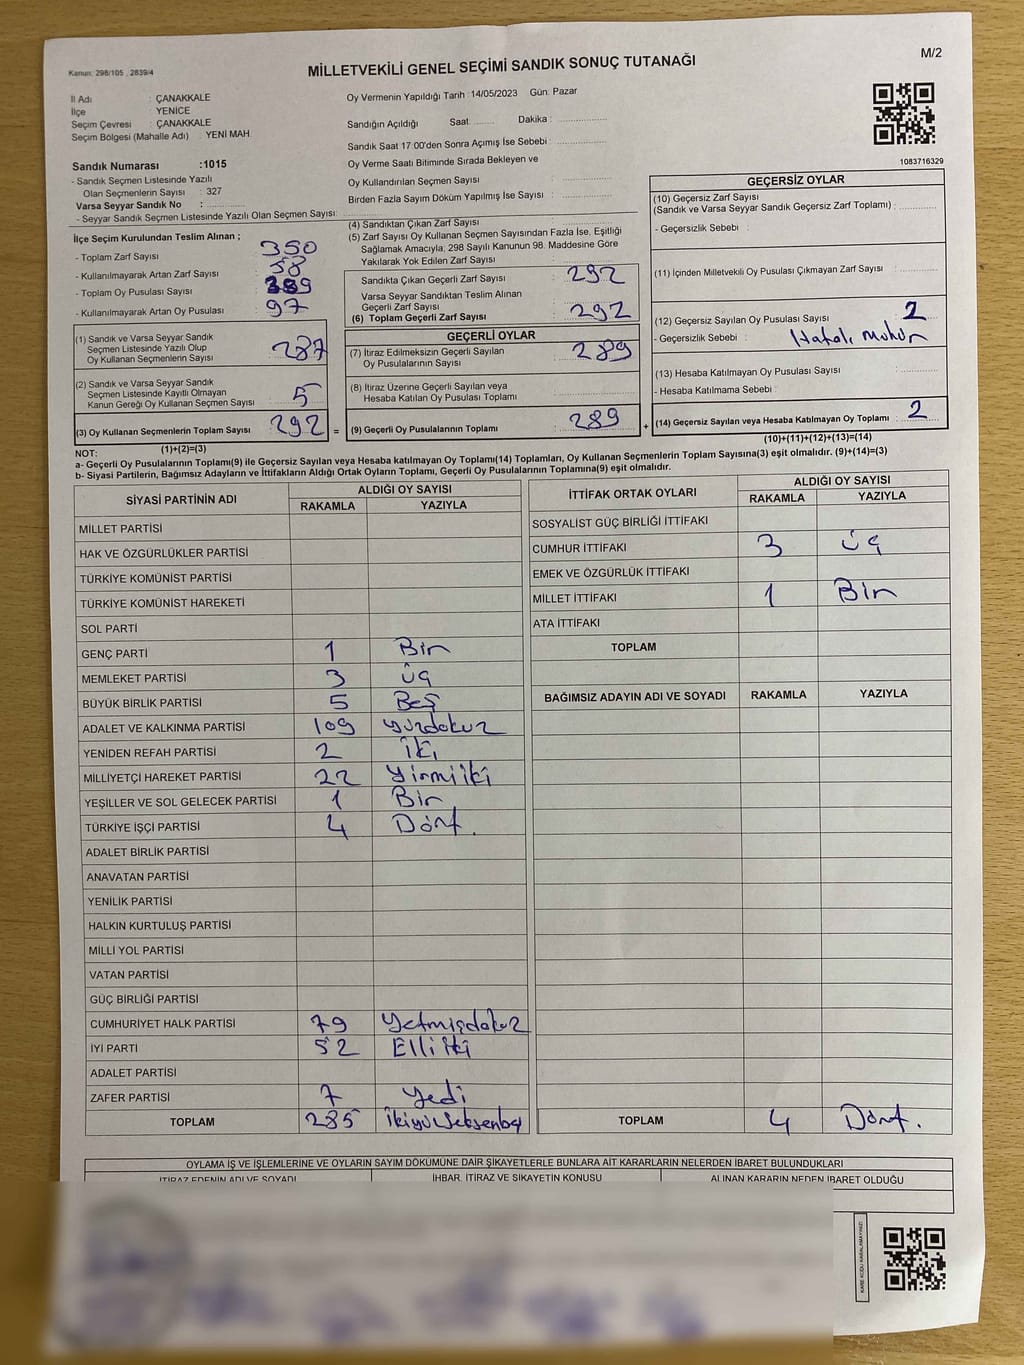 Kanun: 298/105 , 2839/4
MİLLETVEKİLİ GENEL SEÇİMİ SANDIK SONUÇ TUTANAĞI
M/2
İl Adı : ÇANAKKALE
İlçe : YENİCE
Seçim Çevresi : ÇANAKKALE
Seçim Bölgesi (Mahalle Adı) : YENİ MAH.
Sandık Numarası :1015
- Sandık Seçmen Listesinde Yazılı
Olan Seçmenlerin Sayısı : 327
Varsa Seyyar Sandık No :
- Seyyar Sandık Seçmen Listesinde Yazılı Olan Seçmen Sayısı:
Oy Vermenin Yapıldığı Tarih :14/05/2023 Gün: Pazar
Sandığın Açıldığı Saat: Dakika :
Sandık Saat 17:00'den Sonra Açımış İse Sebebi :
Oy Verme Saati Bitiminde Sırada Bekleyen ve
Oy Kullandırılan Seçmen Sayısı
Birden Fazla Sayım Döküm Yapılmış İse Sayısı :
1083716329
İlçe Seçim Kurulundan Teslim Alınan ;
- Toplam Zarf Sayısı : 350
- Kullanılmayarak Artan Zarf Sayısı : 58
- Toplam Oy Pusulası Sayısı : 389
- Kullanılmayarak Artan Oy Pusulası : 97
(1) Sandık ve Varsa Seyyar Sandık
Seçmen Listesinde Yazılı Olup
Oy Kullanan Seçmenlerin Sayısı : 287
(2) Sandık ve Varsa Seyyar Sandık
Seçmen Listesinde Kayıtlı Olmayan
Kanun Gereği Oy Kullanan Seçmen Sayısı : 5
(3) Oy Kullanan Seçmenlerin Toplam Sayısı : 292 =
(1)+(2)=(3)
(4) Sandıktan Çıkan Zarf Sayısı :
(5) Zarf Sayısı Oy Kullanan Seçmen Sayısından Fazla İse, Eşitliği
Sağlamak Amacıyla; 298 Sayılı Kanunun 98. Maddesine Göre
Yakılarak Yok Edilen Zarf Sayısı :
Sandıkta Çıkan Geçerli Zarf Sayısı : 292
Varsa Seyyar Sandıktan Teslim Alınan
Geçerli Zarf Sayısı :
(6) Toplam Geçerli Zarf Sayısı : 292
GEÇERLİ OYLAR
(7) İtiraz Edilmeksizin Geçerli Sayılan
Oy Pusulalarının Sayısı : 289
(8) İtiraz Üzerine Geçerli Sayılan veya
Hesaba Katılan Oy Pusulası Toplamı :
(9) Geçerli Oy Pusulalarının Toplamı : 289 +
GEÇERSİZ OYLAR
(10) Geçersiz Zarf Sayısı
(Sandık ve Varsa Seyyar Sandık Geçersiz Zarf Toplamı) :
- Geçersizlik Sebebi :
(11) İçinden Milletvekili Oy Pusulası Çıkmayan Zarf Sayısı :
(12) Geçersiz Sayılan Oy Pusulası Sayısı : 2
- Geçersizlik Sebebi : Hatalı Mühür
(13) Hesaba Katılmayan Oy Pusulası Sayısı :
- Hesaba Katılmama Sebebi :
(14) Geçersiz Sayılan veya Hesaba Katılmayan Oy Toplamı : 2
(10)+(11)+(12)+(13)=(14)
NOT:
a- Geçerli Oy Pusulalarının Toplamı(9) ile Geçersiz Sayılan veya Hesaba katılmayan Oy Toplamı(14) Toplamları, Oy Kullanan Seçmenlerin Toplam Sayısına(3) eşit olmalıdır. (9)+(14)=(3)
b- Siyasi Partilerin, Bağımsız Adayların ve İttifakların Aldığı Ortak Oyların Toplamı, Geçerli Oy Pusulalarının Toplamına(9) eşit olmalıdır.
SİYASİ PARTİNİN ADI ALDIĞI OY SAYISI
RAKAMLA YAZIYLA
MİLLET PARTİSİ
HAK VE ÖZGÜRLÜKLER PARTİSİ
TÜRKİYE KOMÜNİST PARTİSİ
TÜRKİYE KOMÜNİST HAREKETİ
SOL PARTİ
GENÇ PARTİ 1 Bir
MEMLEKET PARTİSİ 3 Üç
BÜYÜK BİRLİK PARTİSİ 5 Beş
ADALET VE KALKINMA PARTİSİ 109 yüzdokuz
YENİDEN REFAH PARTİSİ 2 İki
MİLLİYETÇİ HAREKET PARTİSİ 22 Yirmiiki
YEŞİLLER VE SOL GELECEK PARTİSİ 1 Bir
TÜRKİYE İŞÇİ PARTİSİ 4 Dört.
ADALET BİRLİK PARTİSİ
ANAVATAN PARTİSİ
YENİLİK PARTİSİ
HALKIN KURTULUŞ PARTİSİ
MİLLİ YOL PARTİSİ
VATAN PARTİSİ
GÜÇ BİRLİĞİ PARTİSİ
CUMHURİYET HALK PARTİSİ 79 Yetmişdokuz
İYİ PARTİ 52 Elli iki
ADALET PARTİSİ
ZAFER PARTİSİ 7 Yedi
TOPLAM 285 ikiyüzseksenbeş
İTTİFAK ORTAK OYLARI ALDIĞI OY SAYISI
RAKAMLA YAZIYLA
SOSYALİST GÜÇ BİRLİĞİ İTTİFAKI
CUMHUR İTTİFAKI 3 Üç
EMEK VE ÖZGÜRLÜK İTTİFAKI
MİLLET İTTİFAKI 1 Bir
ATA İTTİFAKI
TOPLAM
BAĞIMSIZ ADAYIN ADI VE SOYADI RAKAMLA YAZIYLA
TOPLAM 4 Dört.
OYLAMA İŞ VE İŞLEMLERİNE VE OYLARIN SAYIM DÖKÜMÜNE DAİR ŞİKAYETLERLE BUNLARA AİT KARARLARIN NELERDEN İBARET BULUNDUKLARI
İTİRAZ EDENİN ADI VE SOYADI İHBAR, İTİRAZ VE ŞİKAYETİN KONUSU ALINAN KARARIN NEDEN İBARET OLDUĞU
KARE KODU KARALAMAYINIZ!